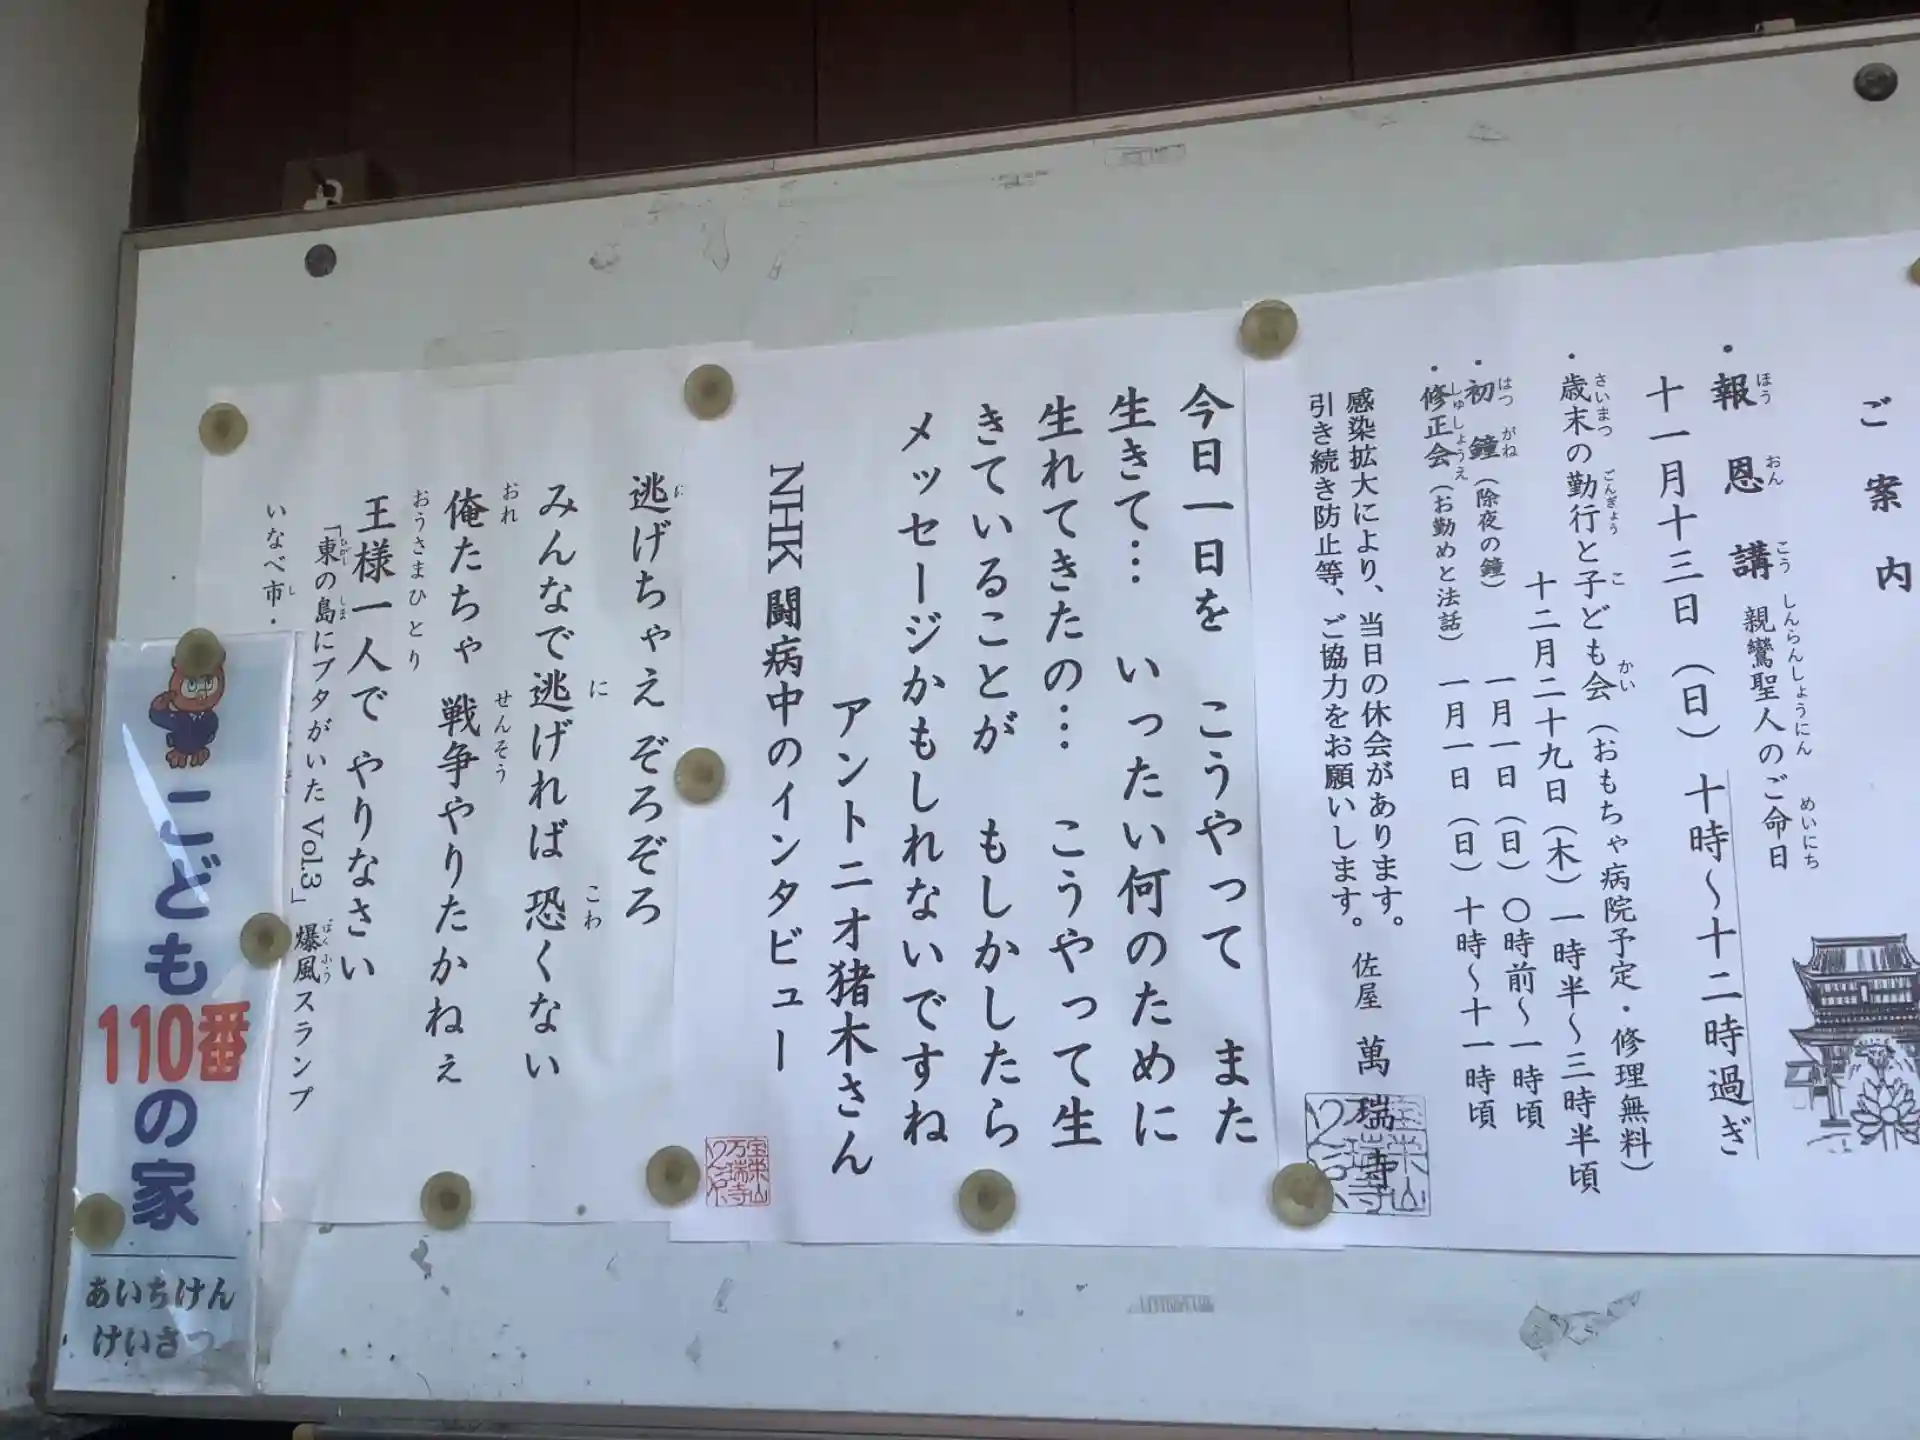 ご案内
・報恩講 親鸞聖人のご命日
十一月十三日（日）十時～十二時過ぎ
・歳末の勤行と子ども会（おもちゃ病院予定・修理無料）
十二月二十九日（木）一時半～三時半頃
・初鐘（除夜の鐘） 一月一日（日）〇時前～一時頃
・修正会（お勤めと法話） 一月一日（日）十時～十一時頃
感染拡大により、当日の休会があります。
引き続き防止等、ご協力をお願いします。 佐屋 萬瑞寺
今日一日を こうやって また
生きて… いったい何のために
生れてきたの… こうやって生
きていることが もしかしたら
メッセージかもしれないですね
アントニオ猪木さん
NHK闘病中のインタビュー
逃げちゃえ ぞろぞろ
みんなで逃げれば 恐くない
俺たちゃ 戦争やりたかねぇ
王様一人で やりなさい
「東の島にブタがいた Vol.3」爆風スランプ
いなべ市・
こども
110番
の家
あいちけん
けいさつ